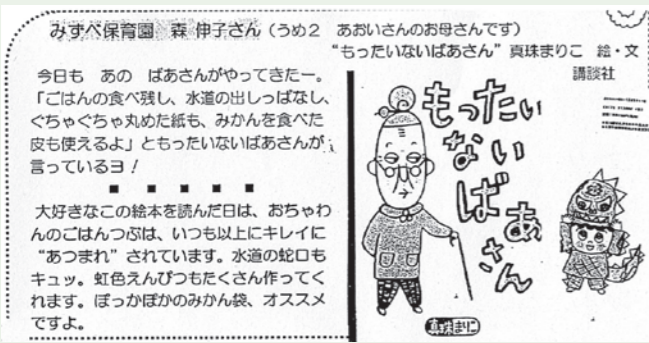 みずべ保育園 森 伸子さん（うめ2 あおいさんのお母さんです）
“もったいないばあさん” 真珠まりこ 絵・文
講談社
今日も あの ばあさんがやってきたー。
「ごはんの食べ残し、水道の出しっぱなし、
ぐちゃぐちゃ丸めた紙も、みかんを食べた
皮も使えるよ」ともったいないばあさんが
言っているヨ！
■ ■ ■ ■ ■
大好きなこの絵本を読んだ日は、おちゃわ
んのごはんつぶは、いつも以上にキレイに
“あつまれ”されています。水道の蛇口も
キュッ。虹色えんぴつもたくさん作ってく
れます。ぽっかぽかのみかん袋、オススメ
ですよ。
もったい
ない
ばあ
さん
真珠まりこ